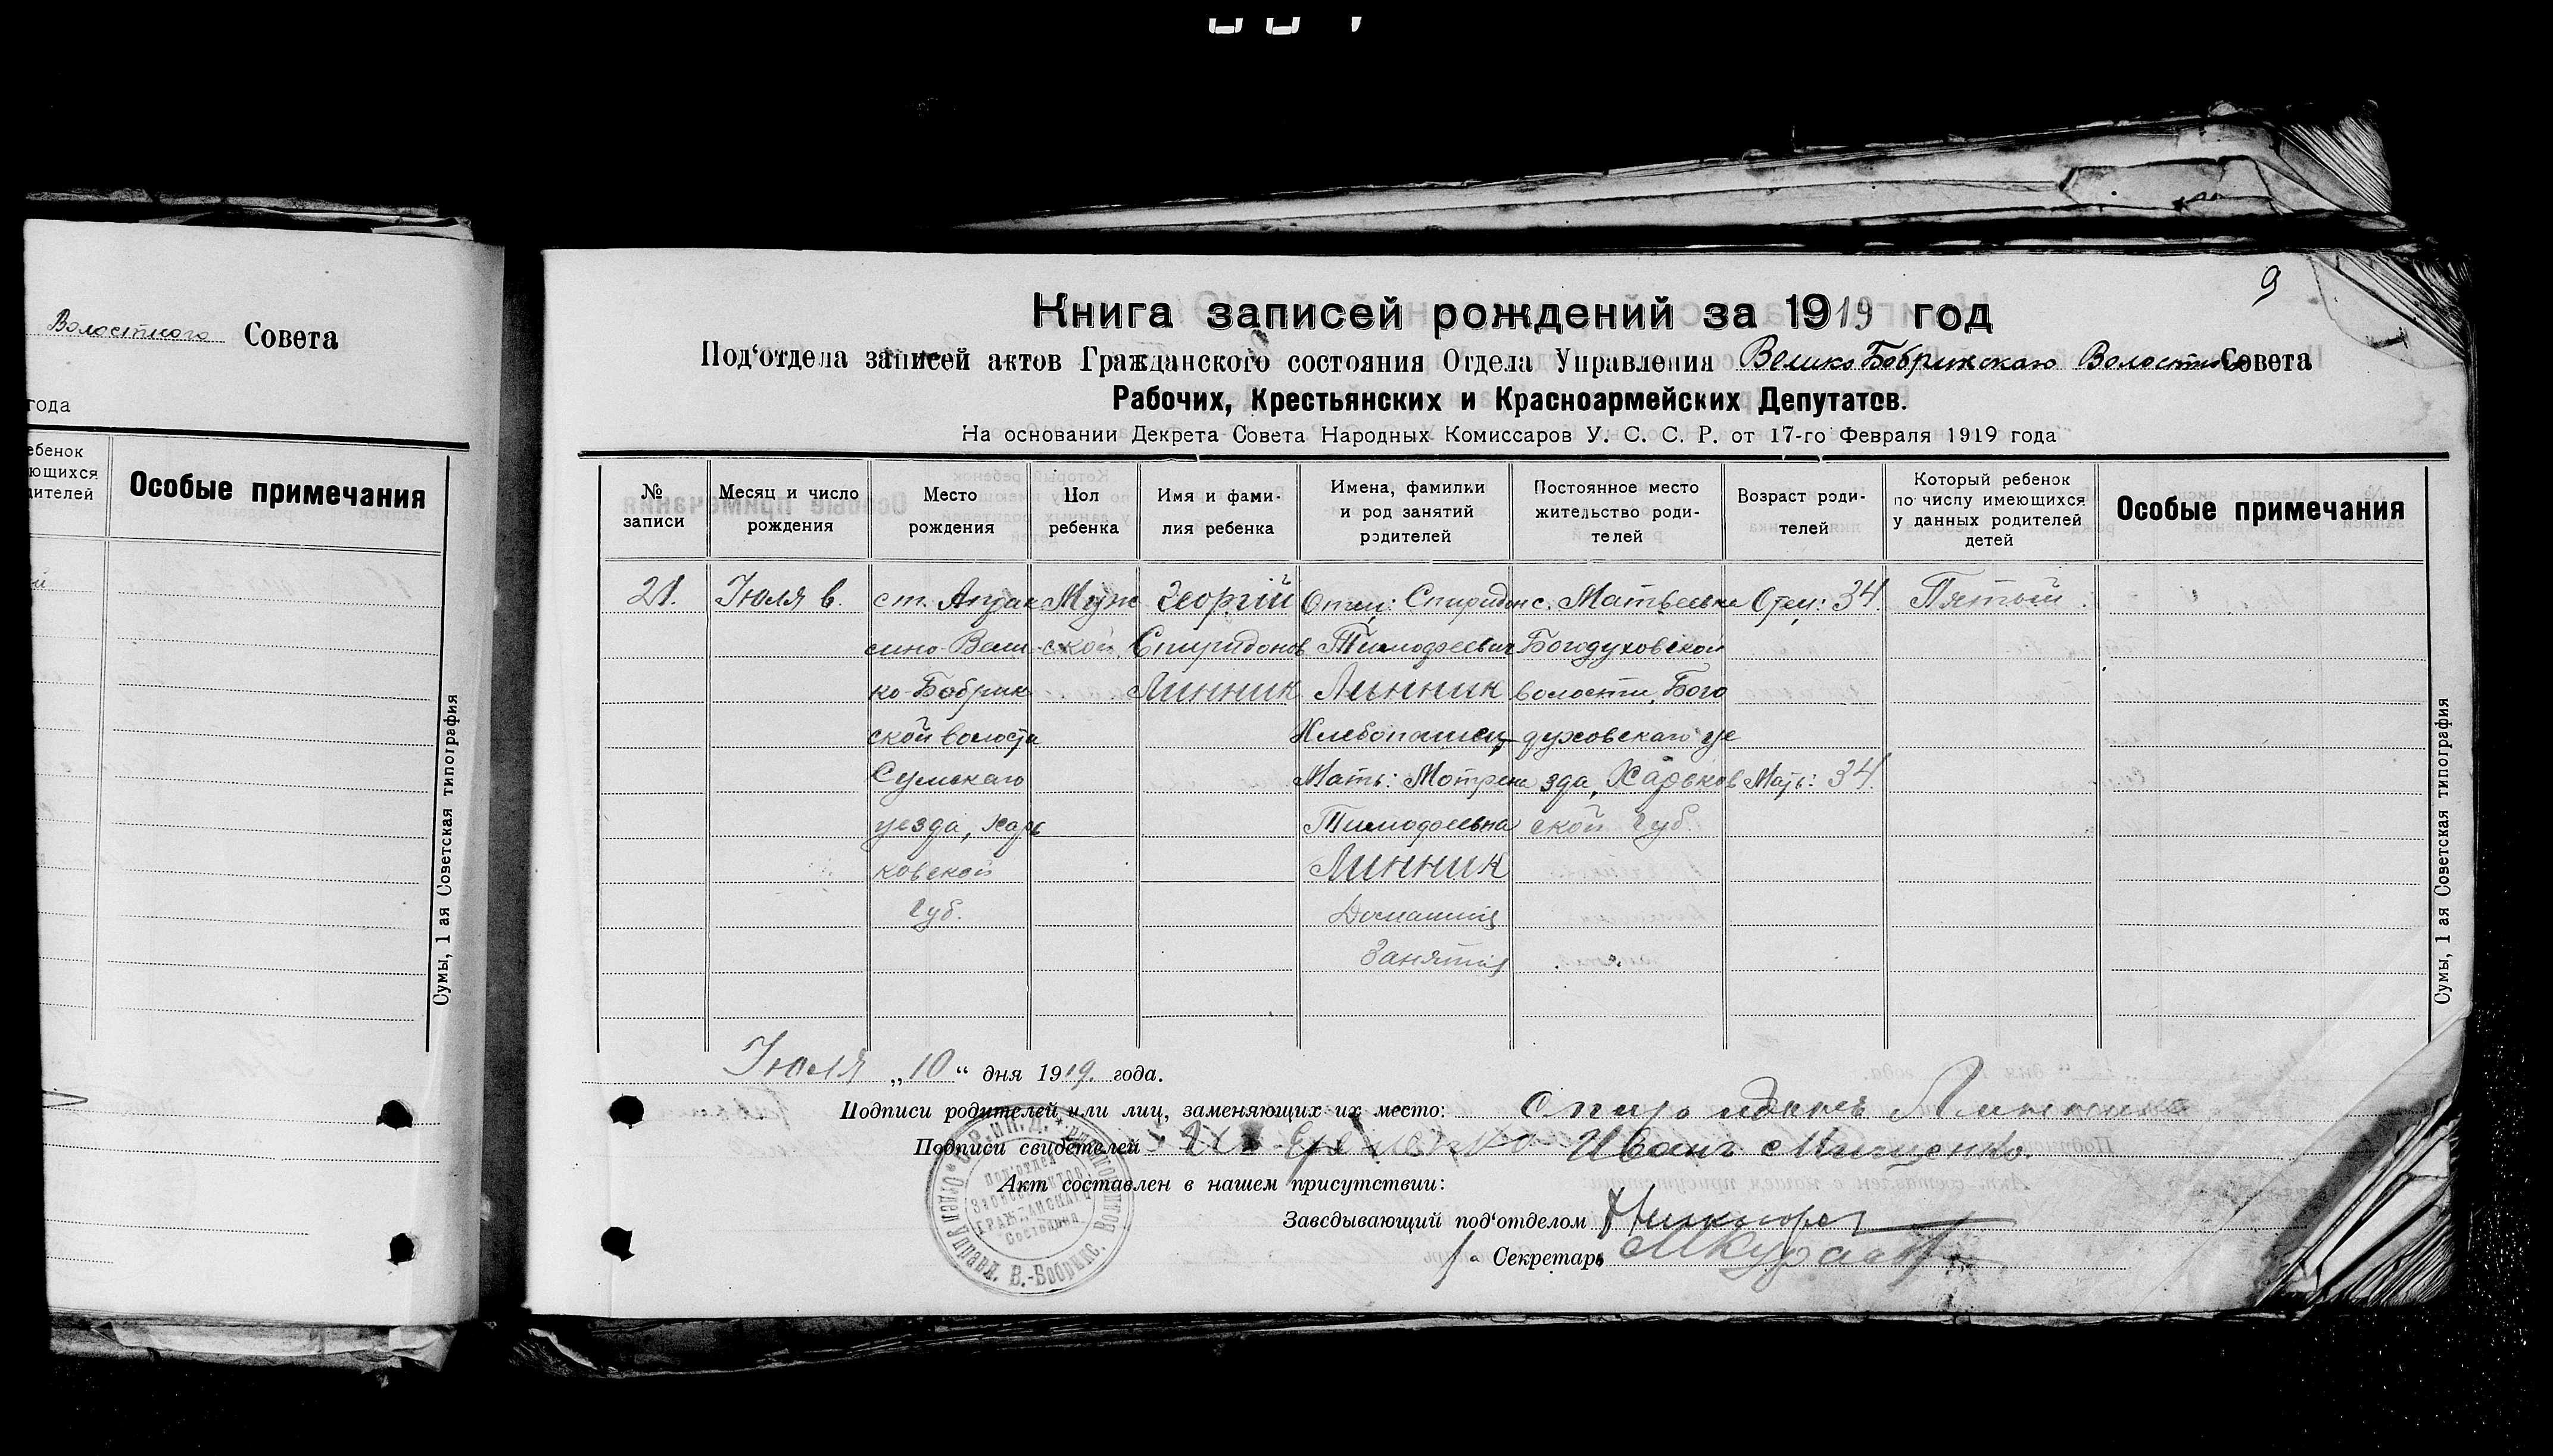 Волостного Совета
года
ебенок
ющихся
дителей
Особые примечания
Сумы, 1 ая Советская типография
9
Книга записей рождений за 1919 год
Под‘отдела записей актов Гражданского состояния Отдела Управления Велико Бобрикскаго Волостного Совета
Рабочих, Крестьянских и Красноармейских Депутатов.
На основании Декрета Совета Народных Комиссаров У. С. С. Р. от 17-го Февраля 1919 года
№ записи
Месяц и число рождения
Место рождения
Пол ребенка
Имя и фами-
лия ребенка
Имена, фамилии
и род занятий
родителей
Постоянное место
жительство роди-
телей
Возраст роди-
телей
Который ребенок
по числу имеющихся
у данных родителей
детей
Особые примечания
21.
Июля 6.
ст.
сино Вели-
ко-Бобрик
ской волости
Сумскаго
уезда, Харь
ковской
губ.
Муж
ской
Георгій
Спиридонов
Линник
Отец: Спиридон
Тимофеевич
Линник
Хлебопашец
Мать: Мотрена
Тимофеевна
Линник
Домашнія
Занятія
с. Матвеевка
Богодуховской
волости, Бого
духовскаго уе
зда, Харьков
ской губ.
Отец: 34.
Мать: 34.
Пятый
Июля „10“ дня 1919. года.
Подписи родителей или лиц, заменяющих их место:
Подписи свидетелей Иванъ Мищенко.
Акт составлен в нашем присутствии:
Заведывающий под‘отделом
Секретарь
Сумы, 1 ая Советская типография